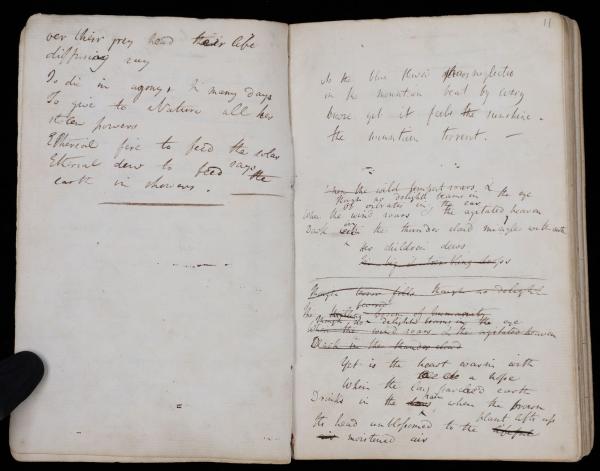 over their prey head their life
diffusing ray
To die in agony, & many days
To give to Nature all her
stolen powers
Etherial fire to feed the solar rays
Etherial dew to feed the
earth in showers.
11
As the blue flower neglected
in the mountain beat by every
breeze yet it feels the sunshine.
the mountain torrent. —
When the wild tempest roars, &
though no delight beams in the eye
or vibrates in the ear
When the wind roars & the agitated heaven
Dark with the thunder cloud mingles with earth
his children dews
In big drops
Though terror fills though no delight
the
though no delight beams in the eye
When the wind roars & the agitated heaven
Dark in the thunder cloud
Yet is the heart warm with
a hope
When the earth
Drinks in the rain when the frozen
plant lifts up
its head unblossomed to the
moistened air